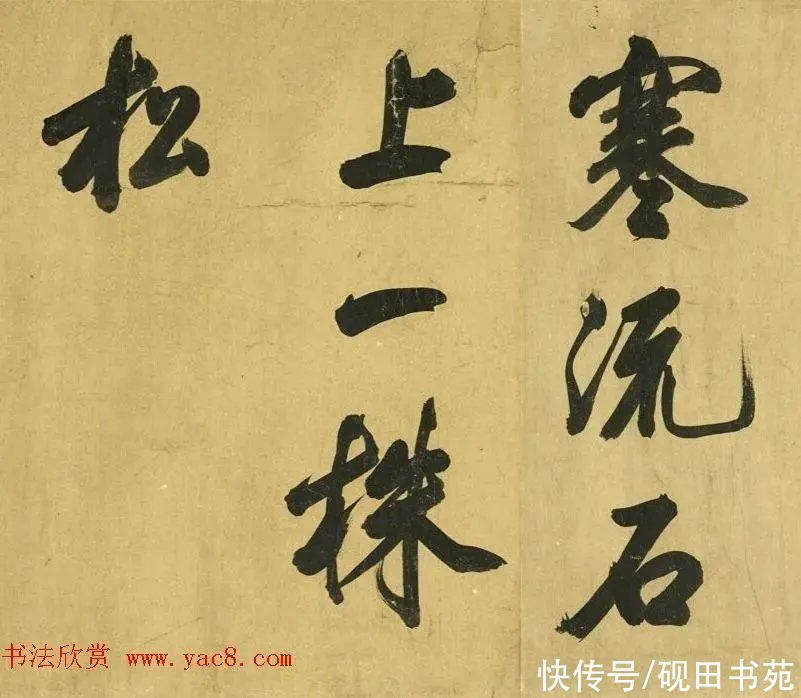 寒流石
上一株
松
书法欣赏 www.yac8.com
快传号/砚田书苑